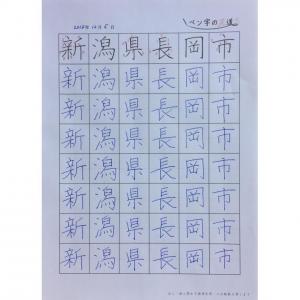 ペン字の道
新潟県長岡市
新潟県長岡市
新潟県長岡市
新潟県長岡市
新潟県長岡市
新潟県長岡市
新潟県長岡市
新潟県長岡市